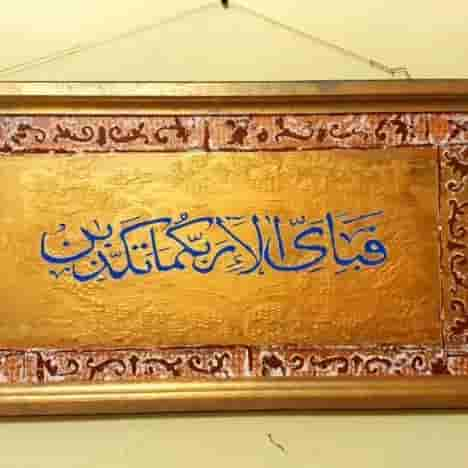 فَبِأَىِّ آلَاءِ رَبِّكُمَا تُكَذِّبَانِ